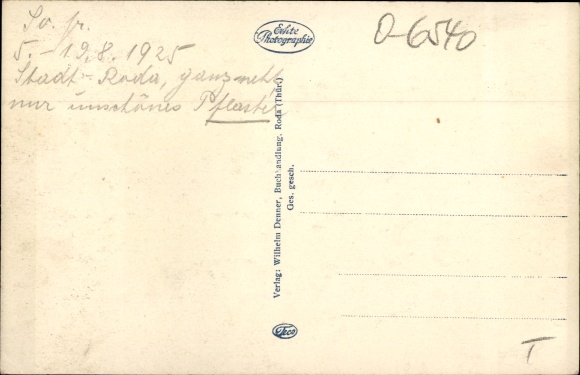 5. – 19.8.1925
Stadt-Roda, ganz nett
nur unschönes Pflaster
Echte
Photographie
O-6540
Verlag: Wilhelm Denner, Buchhandlung, Roda (Thür.)
Ges. gesch.
T